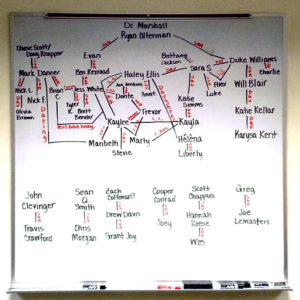 Dr. Marshall
Ryan Otterman
Chase Scott/
Doug Knepper
Evan
Brittany
Sara S.
Duke Williams
Charlie
Mark Danner
Ben Rexroad
Haley Ellis
Nick L.
Nick F.
Brian
C.
Jess White
Dante
Peter
Luke
Will Blair
Olivia
Brown
Tyler
K.
Brett
Bender
Trevor
Katie
Simms
Katie Kellar
Kaylee
Kayla
Karysa Kent
Maribeth
Marty
Helena
Stevie
Liberty
John
Clevinger
Sean
Q.
Smith
Zach
Coffman?
Cooper
Conrad
Scott
Chappuis
Greg
Travis
Crawford
Chris
Morgan
Drew Davis
Grant Joy
Joey
Hannah
Reese
Wes
Joe
Lemasters